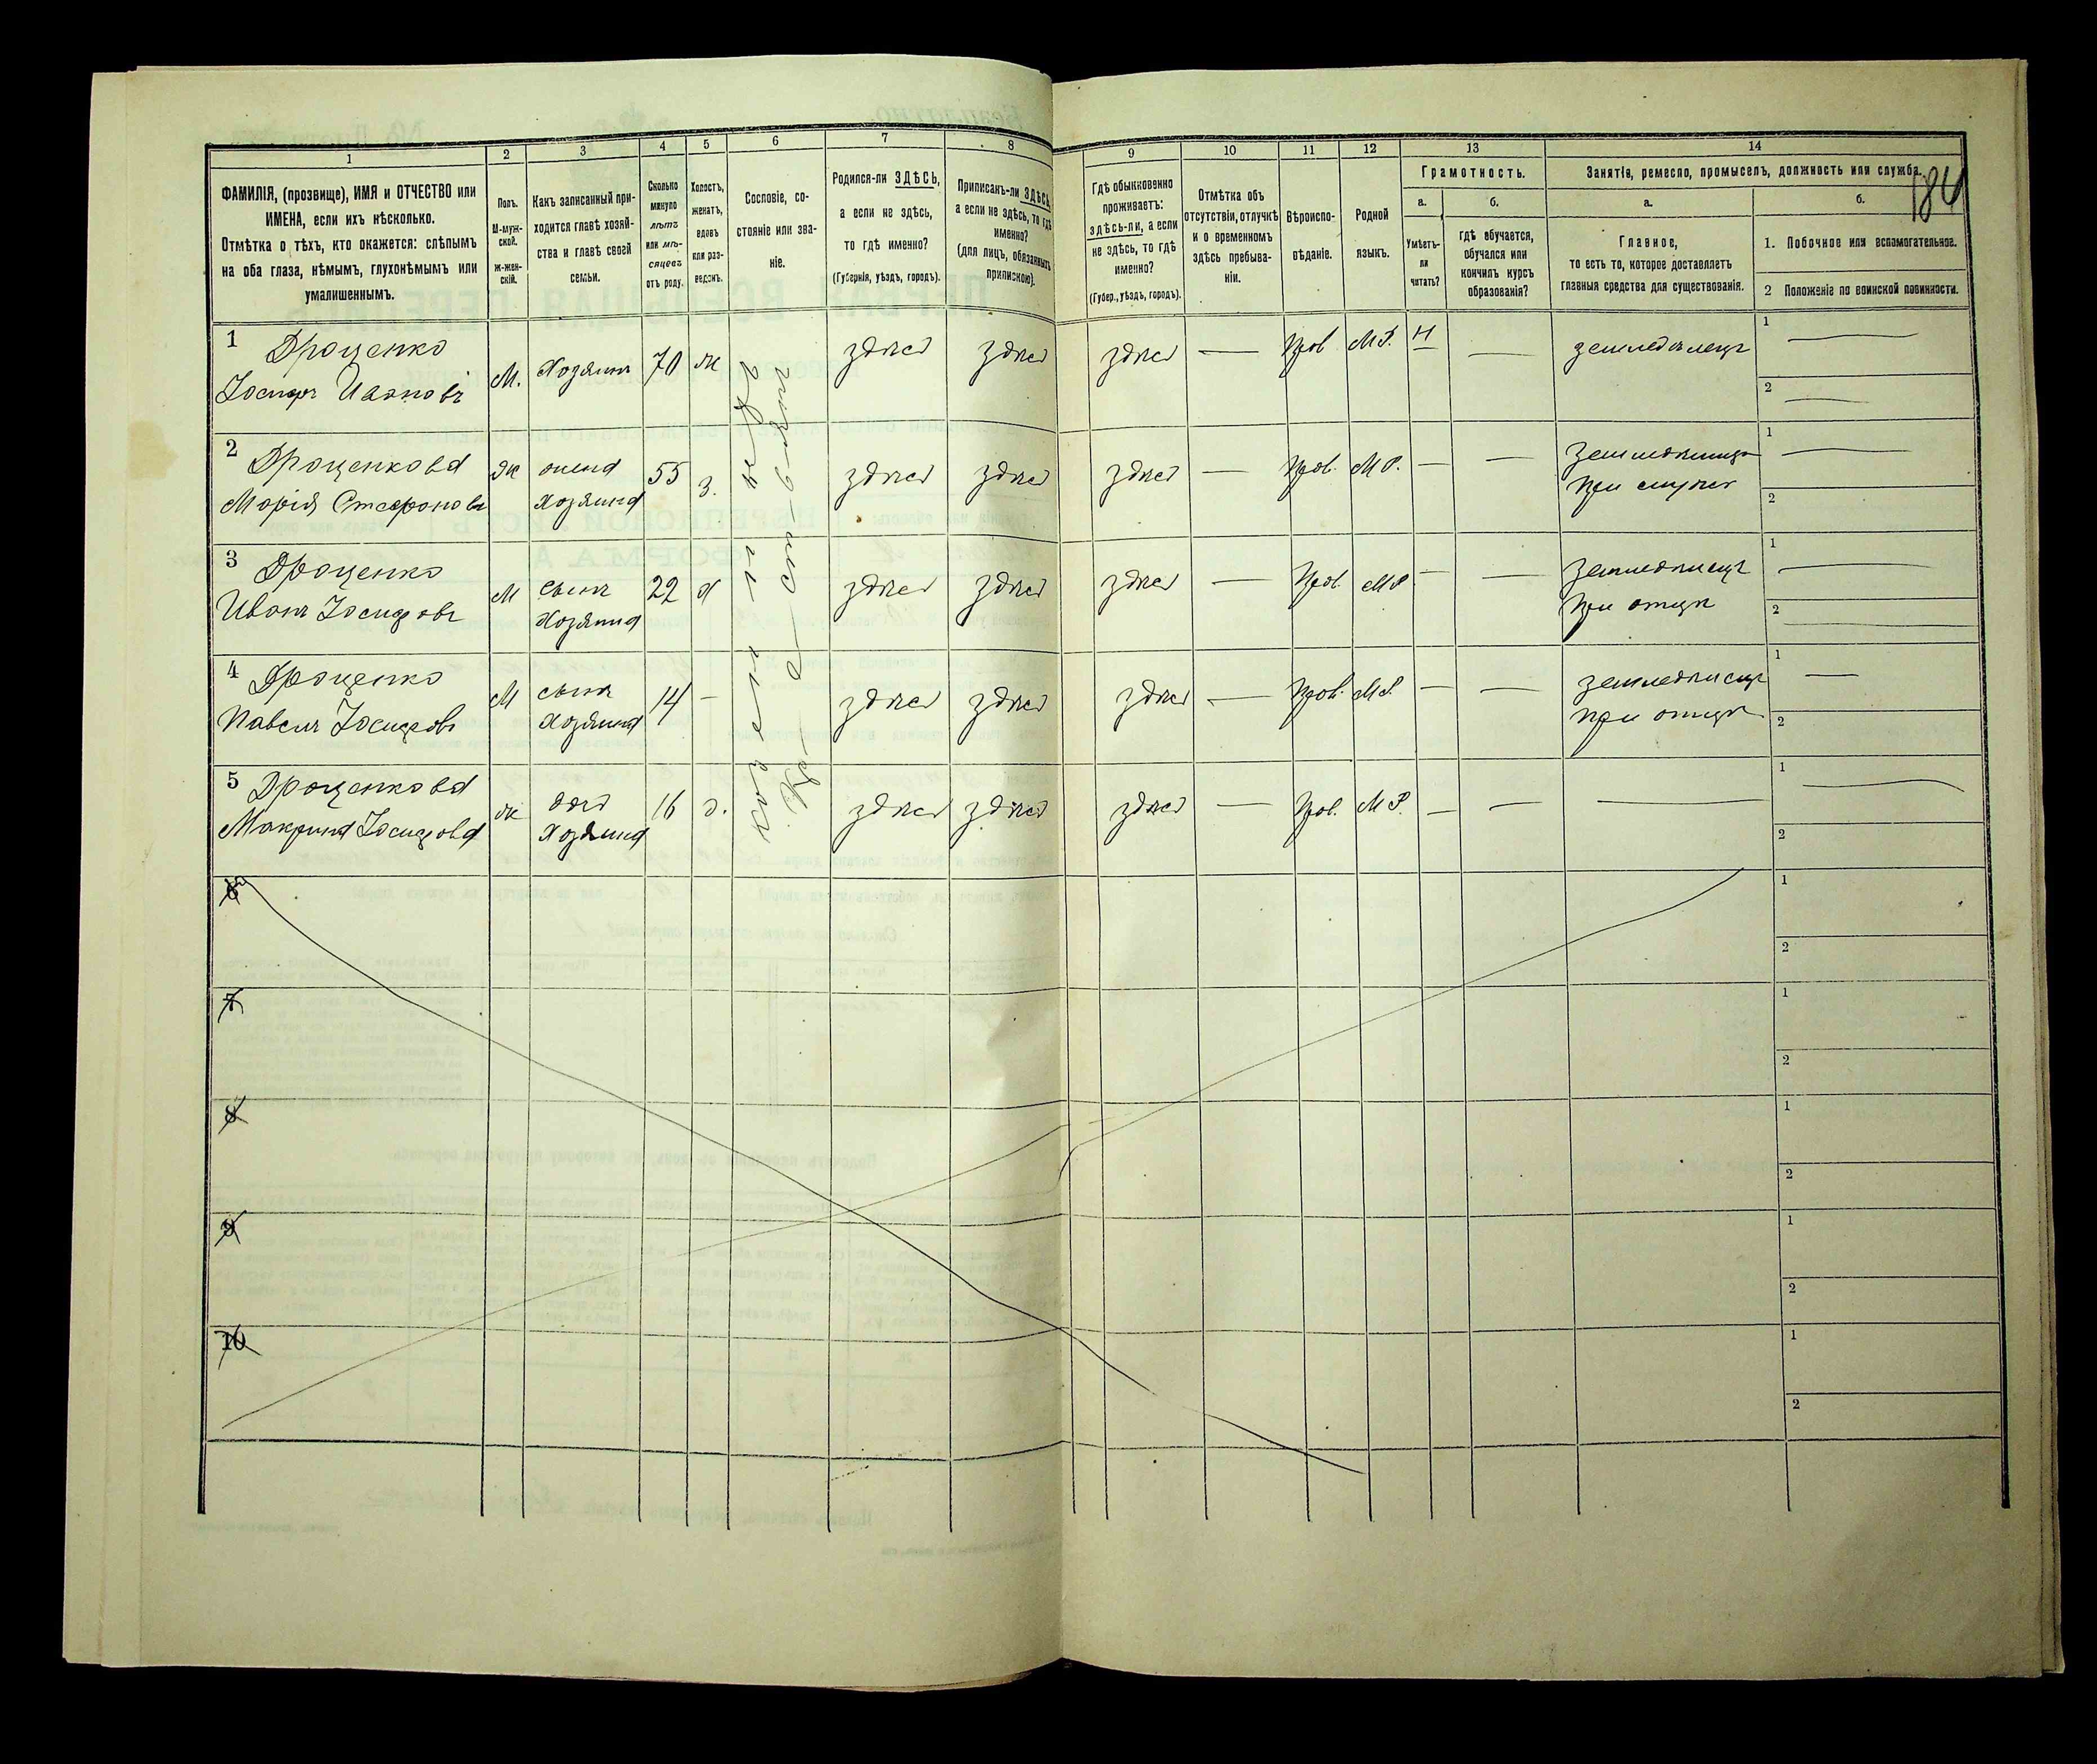 1 2 3 4 5 6 7 8 9 10 11 12 13 14
ФАМИЛІЯ, (прозвище), ИМЯ и ОТЧЕСТВО или
ИМЕНА, если ихъ нѣсколько.
Отмѣтка о тѣхъ, кто окажется: слѣпымъ
на оба глаза, нѣмымъ, глухонѣмымъ или
умалишеннымъ.
Полъ.
М-муж-
ской.
Ж-жен-
скій.
Какъ записанный при-
ходится главѣ хозяй-
ства и главѣ своей
семьи.
Сколько
минуло
лѣтъ
или мѣ-
сяцевъ
отъ роду.
Холостъ,
женатъ,
вдовъ
или раз-
веденъ.
Сословіе, со-
стояніе или зва-
ніе.
Родился-ли ЗДѢСЬ,
а если не здѣсь,
то гдѣ именно?
(Губернія, уѣздъ, городъ).
Приписанъ-ли ЗДѢСЬ,
а если не здѣсь, то гдѣ
именно?
(для лицъ, обязанныхъ
припискою).
Гдѣ обыкновенно
проживаетъ:
здѣсь-ли, а если
не здѣсь, то гдѣ
именно?
(Губер., уѣздъ, городъ).
Отмѣтка объ
отсутствіи, отлучкѣ
и о временномъ
здѣсь пребыва-
ніи.
Вѣроиспо-
вѣданіе.
Родной
языкъ.
Грамотность.
а.
Умѣетъ-
ли
читать?
б.
гдѣ обучается,
обучался или
кончилъ курсъ
образованія?
Занятія, ремесло, промыселъ, должность или служба.
а.
Главное,
то есть то, которое доставляетъ
главныя средства для существованія.
б.
1. Побочное или вспомогательное.
2 Положеніе по воинской повинности.
1 Дроценко
Іосифъ Ивановъ
М. Хозяинъ 70 ж здѣсь здѣсь здѣсь — Прав М.Р. Н — земледѣлецъ 1 — 2 —
2 Дроценкова
Марія Стефанова
Ж жена
Хозяина
55 з. здѣсь здѣсь здѣсь — Прав. М.Р. — —
1 — 2
3 Дроценко
Иванъ Іосифовъ
М сынъ
Хозяина
22 х здѣсь здѣсь здѣсь — Прав. М.Р. — — земледѣлецъ
при отцѣ
1 — 2 —
4 Дроценко
Павелъ Іосифовъ
М сынъ
Хозяина
14 — здѣсь здѣсь здѣсь — Прав. М.Р. — — земледѣлецъ
при отцѣ
1 — 2
5 Дроценкова
Макрина Іосифова
ж дочь
Хозяина
16 д. здѣсь здѣсь здѣсь — Прав. М.Р. — — — 1 — 2
6 1 2
7 1 2
8 1 2
9 1 2
10 1 2